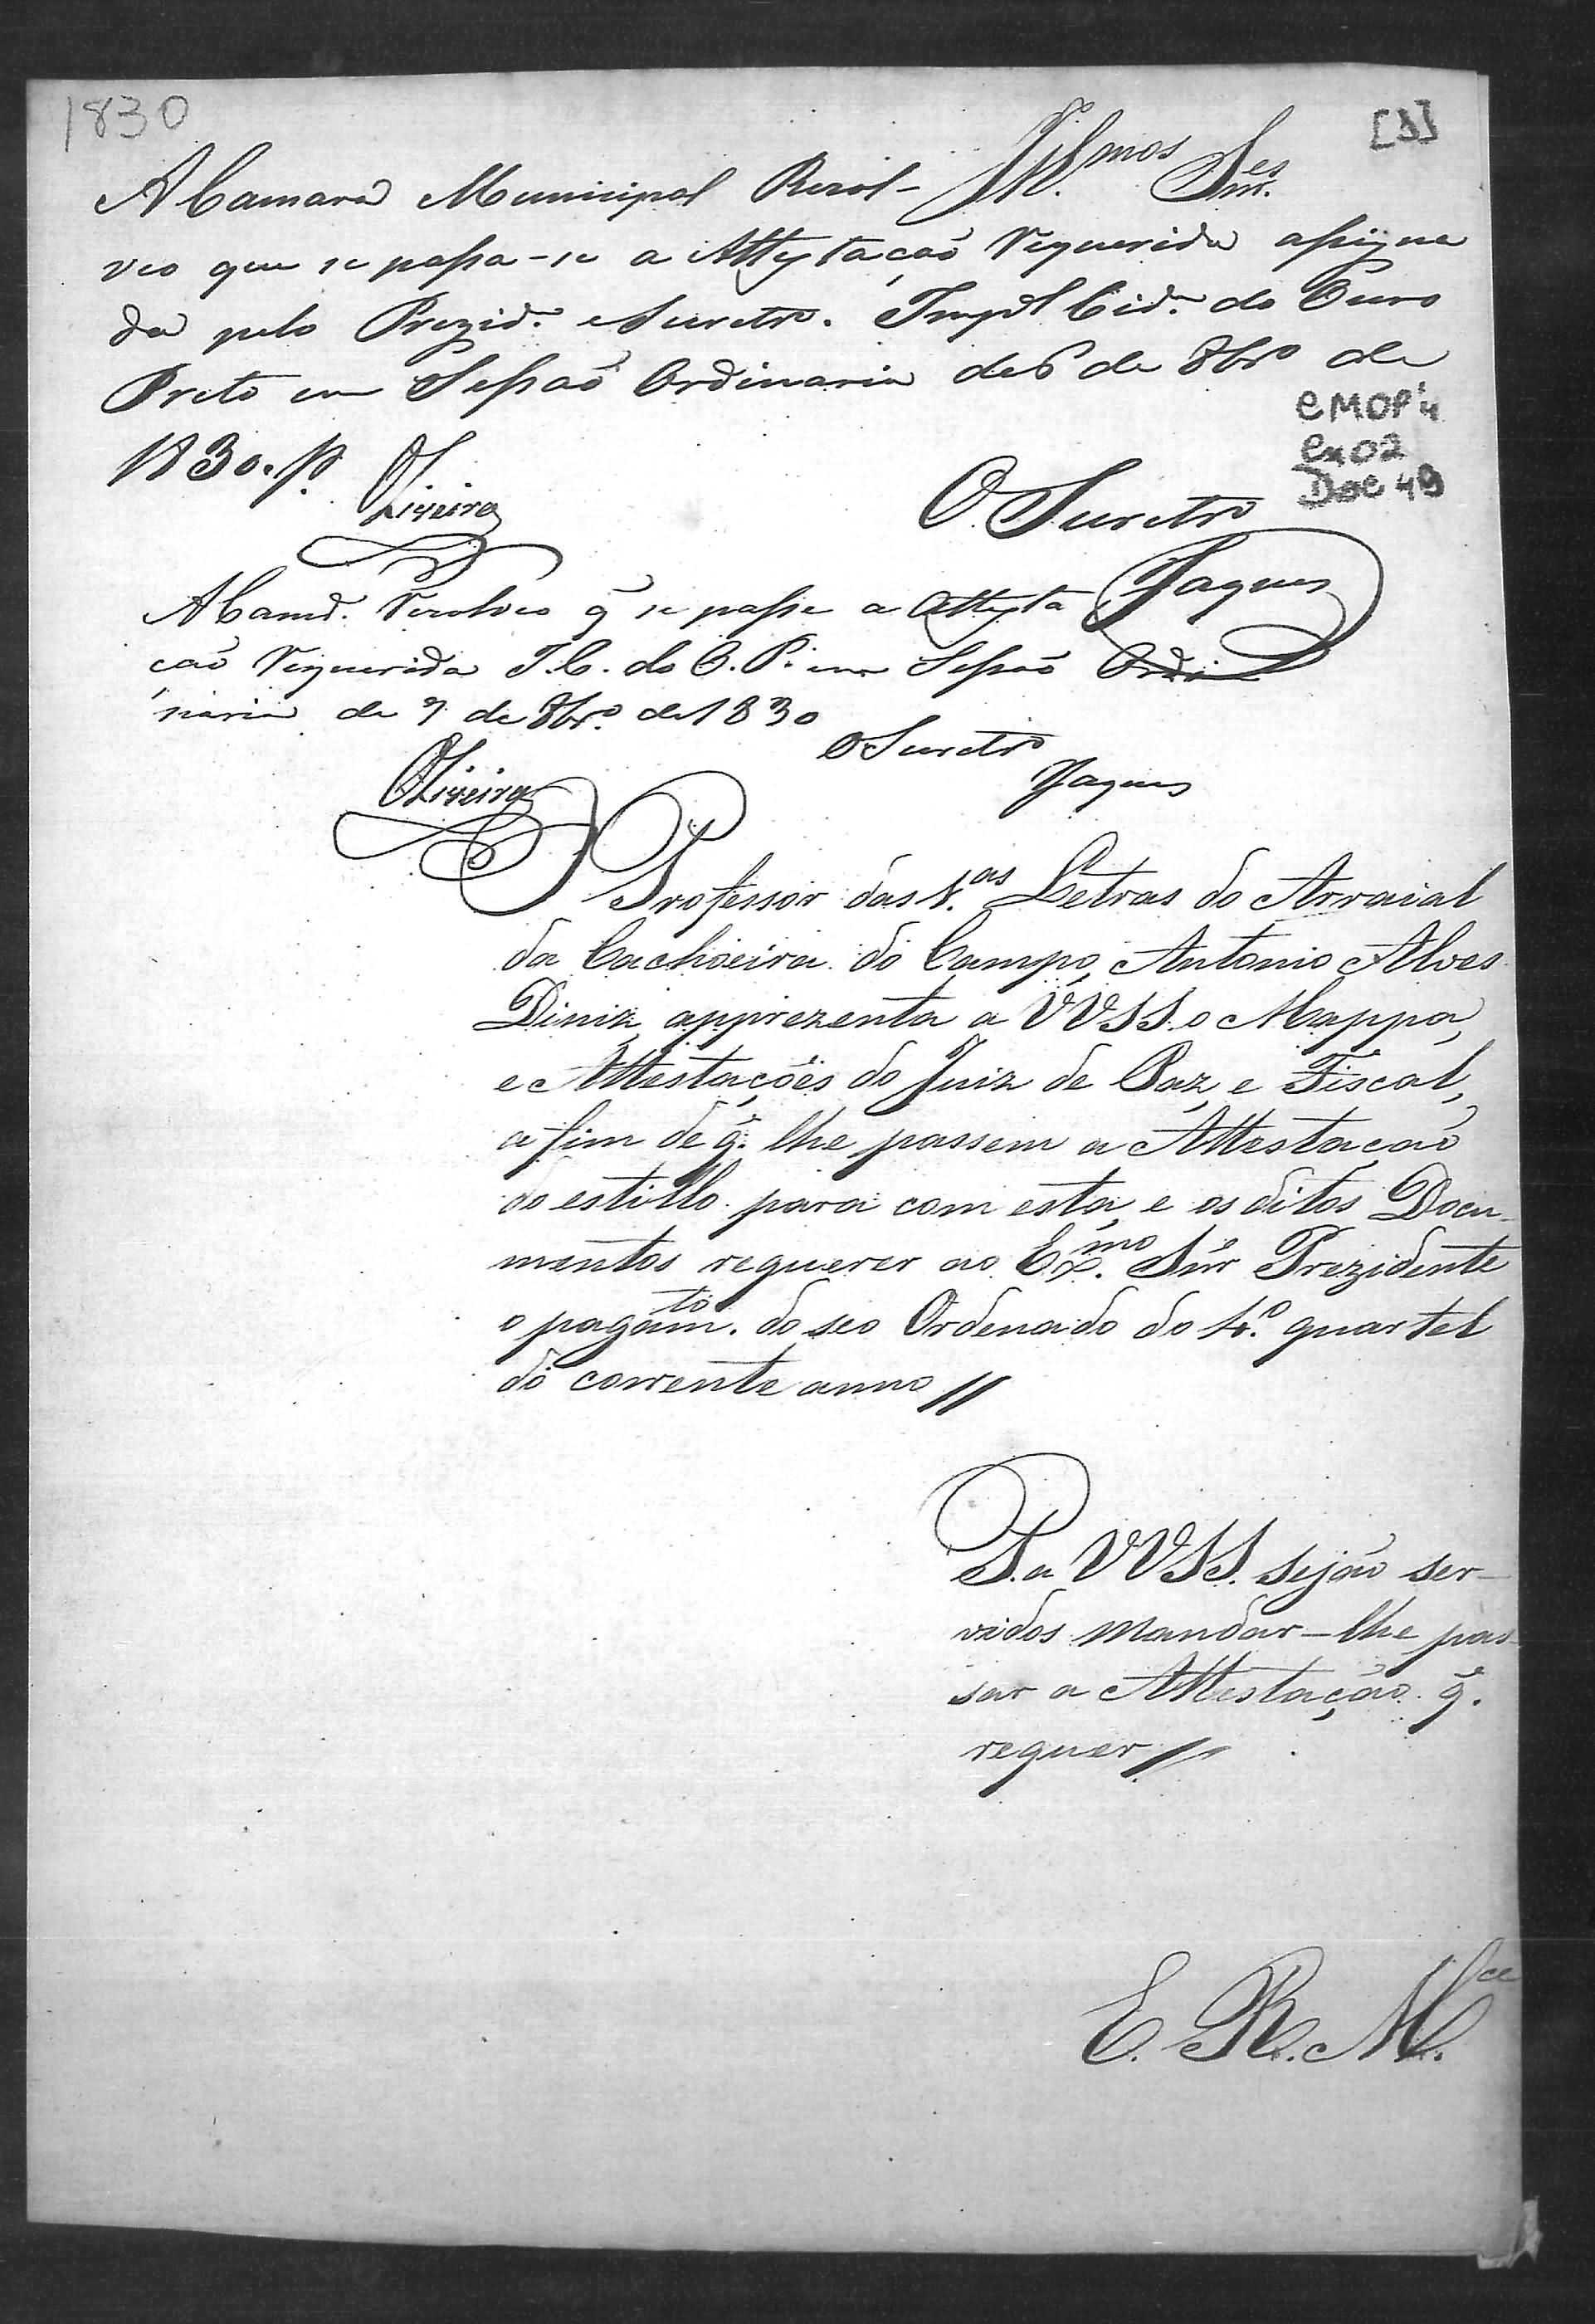 1830
[3]
Ill.mos Snr.es
A Camara Municipal Rezol-
veo que se passa-se a Attestação Requerida assigna
da pelo Prezid.e e Secretr.o Imp.al Cid.e do Ouro
Preto em Sessaõ Ordinaria de 6 de 8br.o de
1830. P.
CMOP
cx 02
Doc 49
Oliveira
O Secretr.o
Jaques
A Camr.a Rezolveo q̃ se passe a Attesta
caõ Requerida I.C. do O.P. em Sessaõ Ordi
naria de 7 de 8br.o de 1830
O Secretr.o
Oliveira
Jaques
O Professor das 1.as Letras do Arraial
da Cachoeira do Campo, Antonio Alves
Diniz, apprezenta a VVSS. o Mappa,
e Attestações do Juiz de Paz, e Fiscal,
a fim de q̃. lhe passem a Attestaçaõ
do estillo para com esta, e os ditos Docu-
mentos requerer ao Ex.mo Snr Prezidente
o pagam.to do seo Ordenado do 4.o quartel
do corrente anno //
P. a VVSS. sejaõ ser-
vidos mandar-lhe pas-
sar a Attestação q̃.
requer //
E. R. M.ce